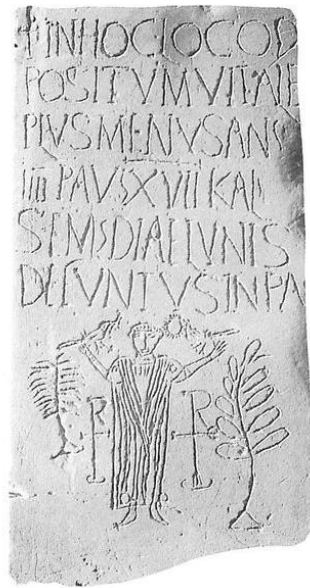 † IN HOC LOCO D
POSITVM VITALE
PLVS MENVS ANS
IIII PAVS XVII KAL
SEMS DIAE LVNIS
DEFVNTVS IN PA